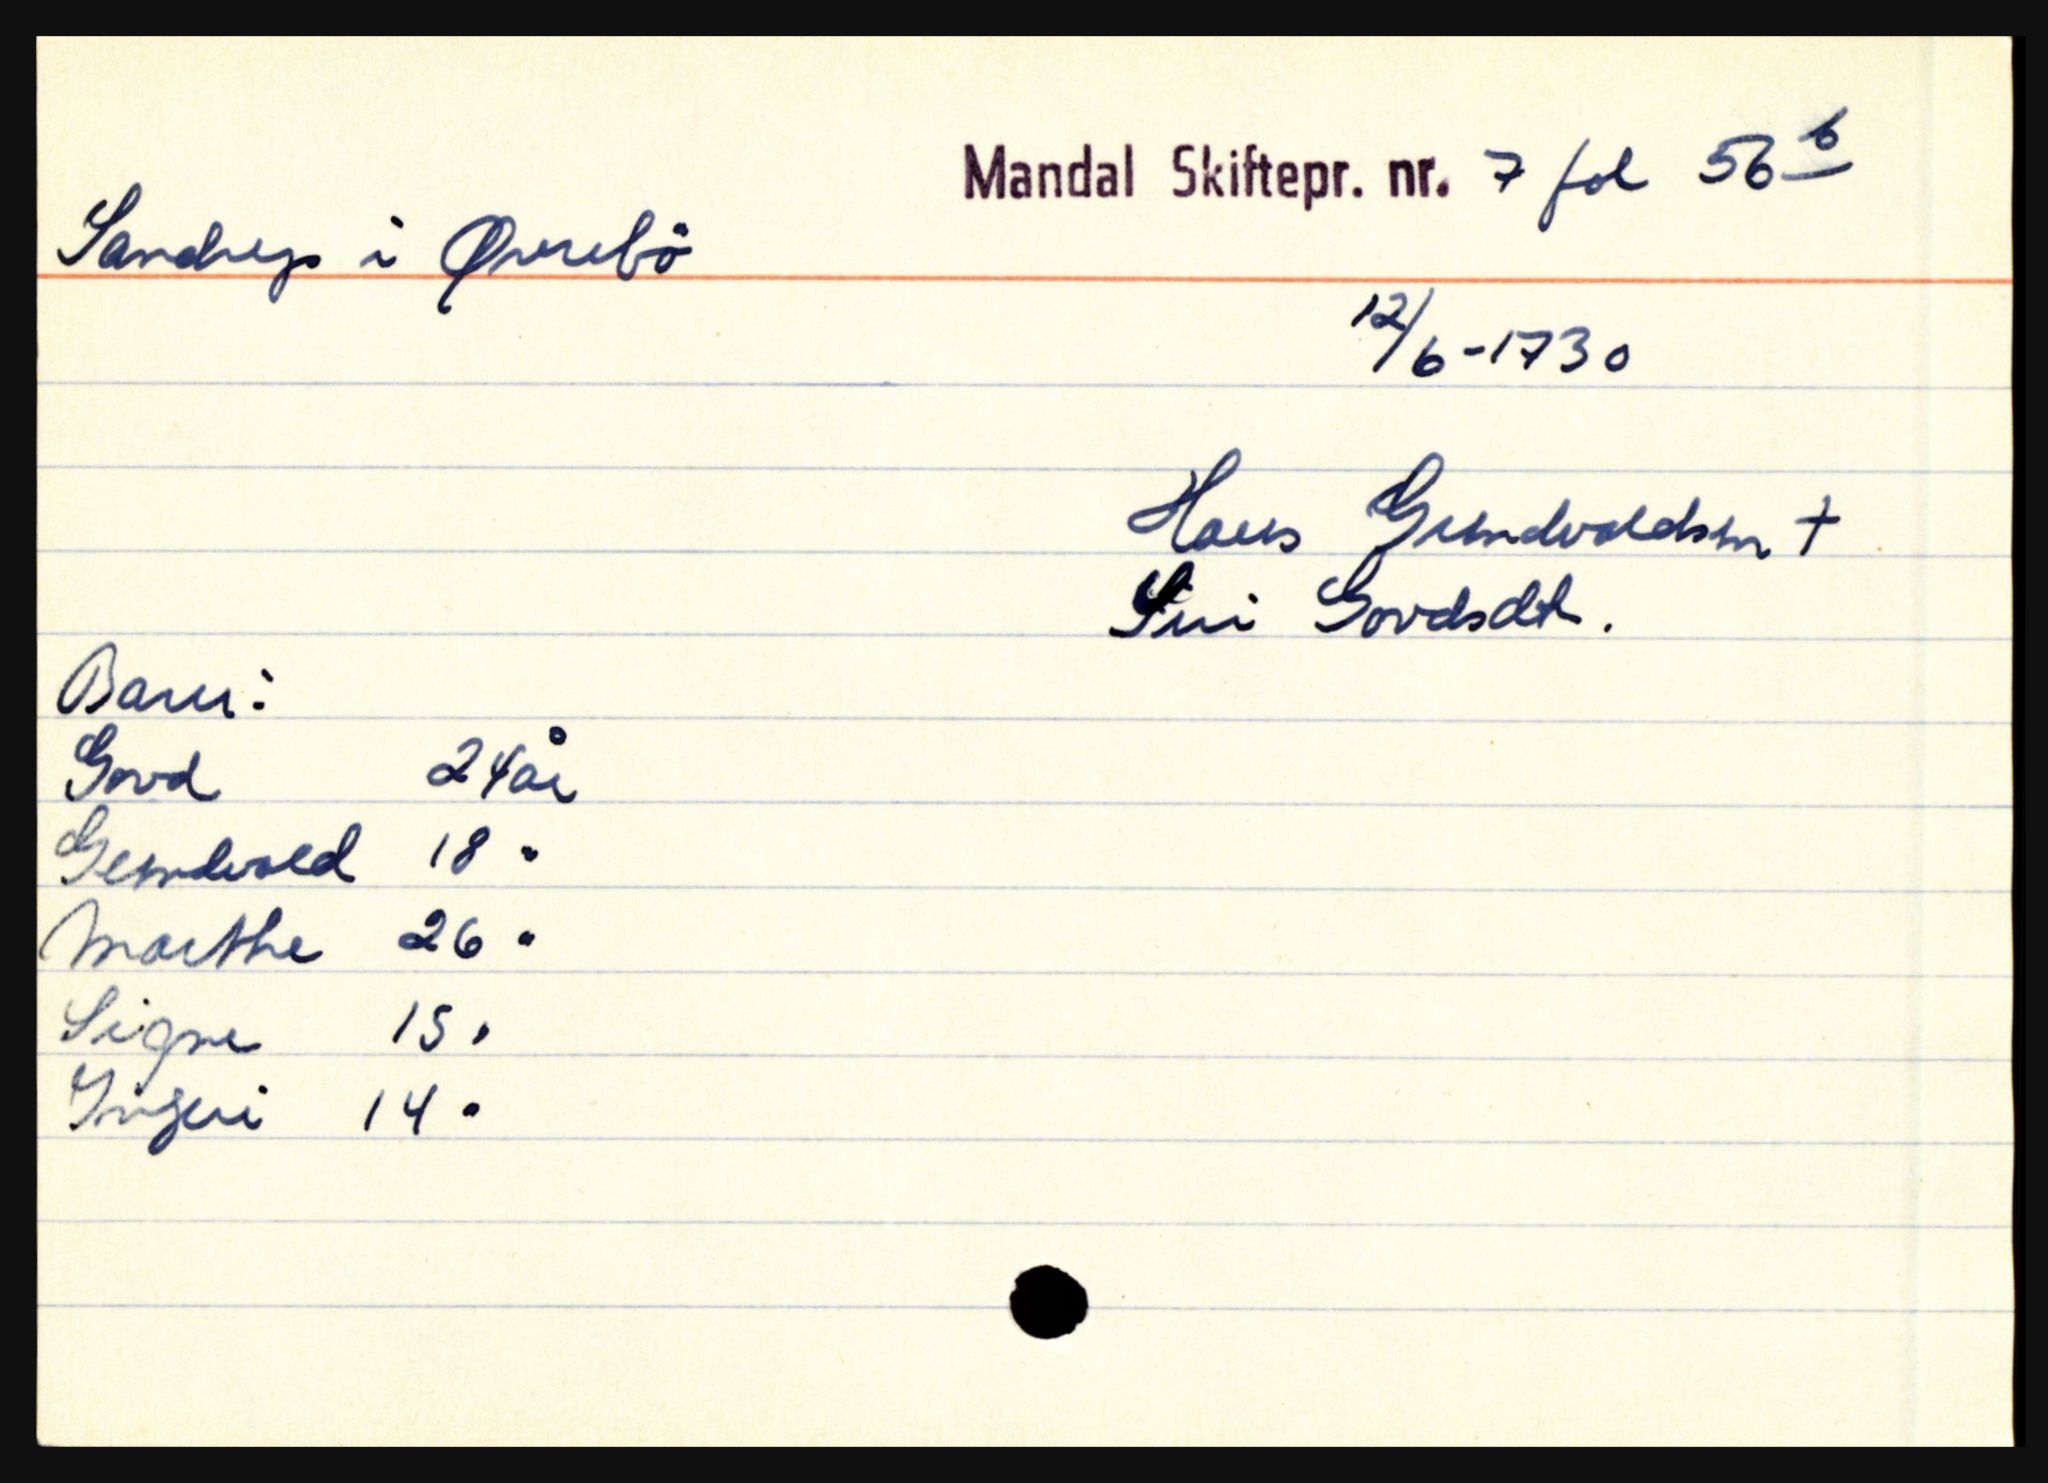 Mandal Skiftepr. nr. 7 fol 56 b
Sandrys i Øvrebö
12/6-1730
Hans Gundvaldsen +
Siri Govdsdt.
Barn:
Govd 24 år
Gundvald 18 "
Marthe 26 "
Signe 15 "
Ingeri 14 "